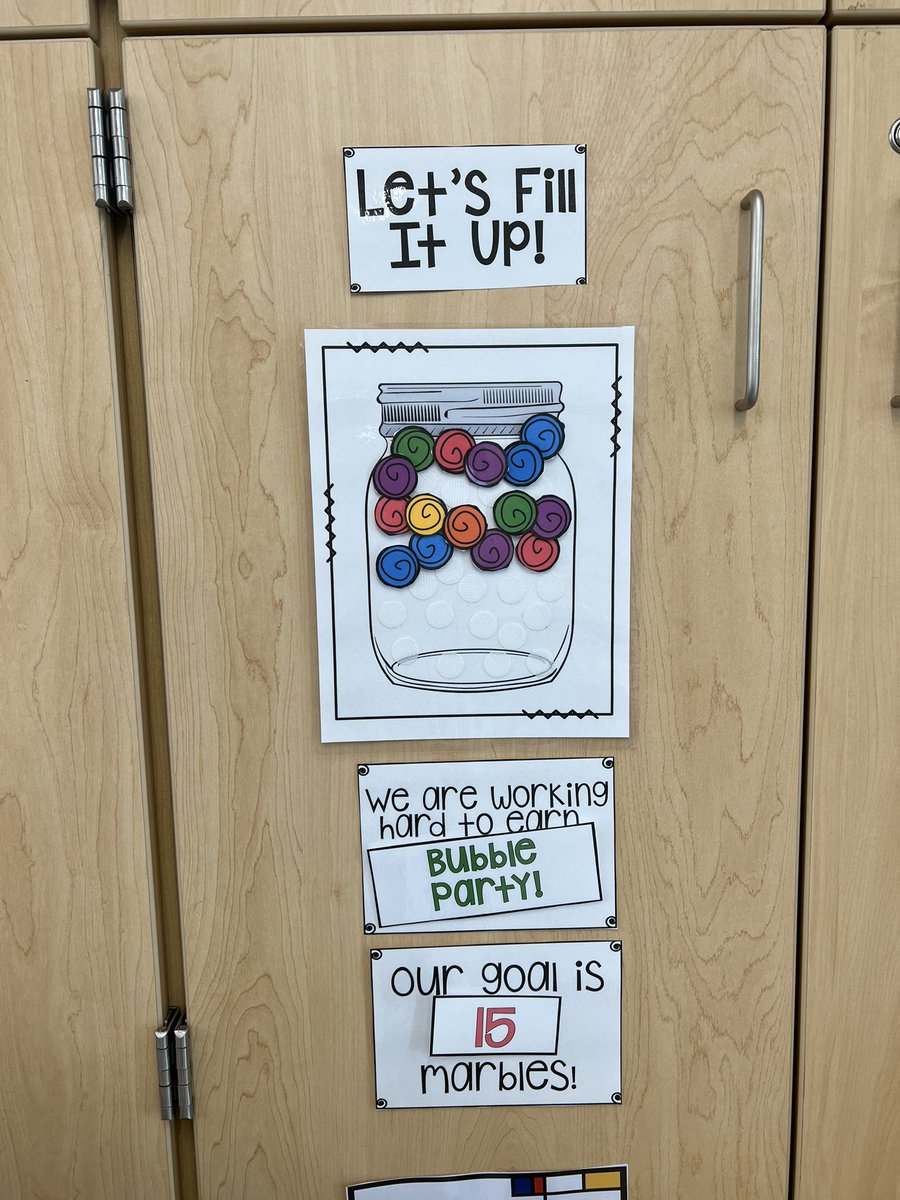 Let's Fill
It Up!
we are working
hard to earn
Bubble
Party!
our goal is
15
marbles!